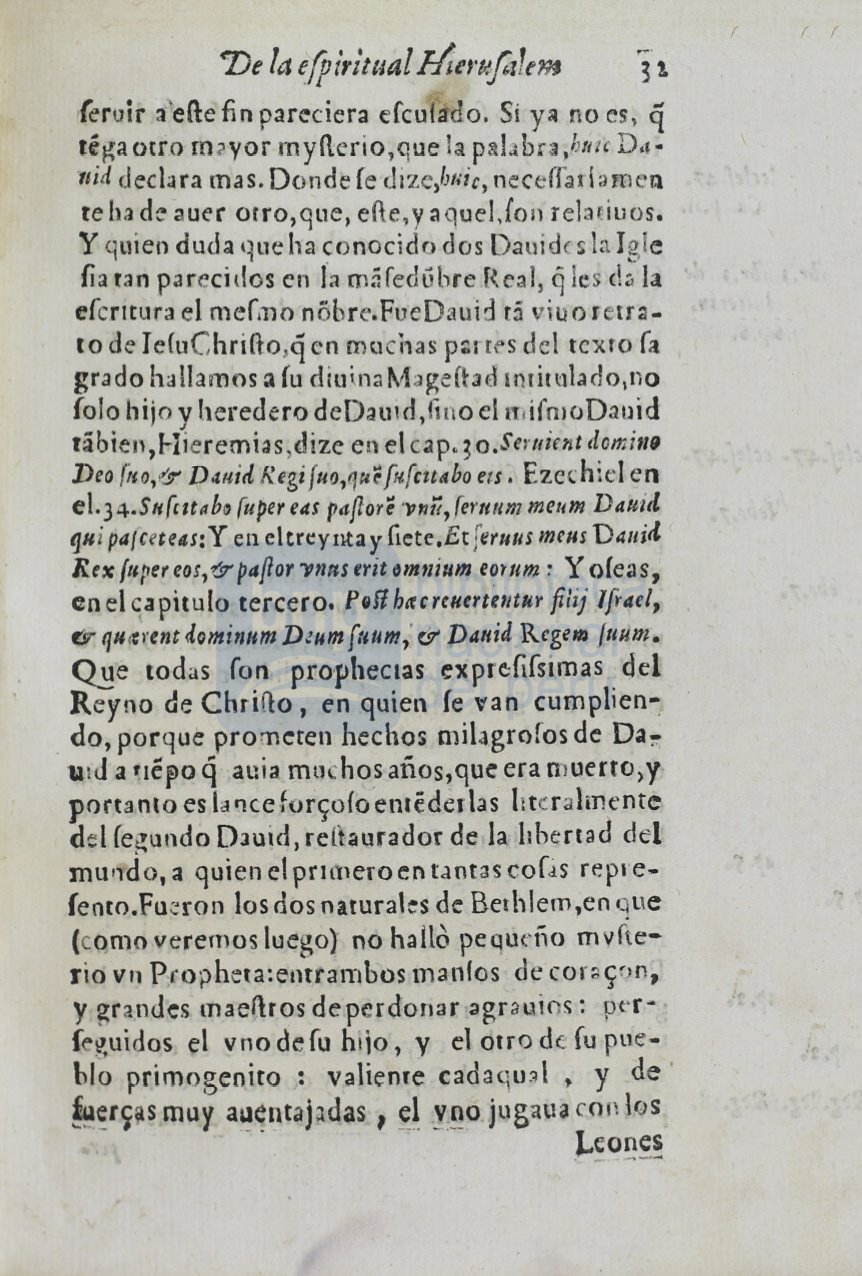 De la eſpiritual Hieruſalem 32
ſeruir a eſte fin pareciera eſcuſado. Si ya no es, q̃
tẽga otro mayor myſterio, que la palabra, huic Da-
uid declara mas. Donde ſe dize, huic, neceſſariamen
te ha de auer otro, que, eſte, y aquel, ſon relatiuos.
Y quien duda que ha conocido dos Dauides la Igle
ſia tan parecidos en la mãſedũbre Real, q̃ les da la
eſcritura el meſmo nõbre. Fue Dauid tã viuo retra-
to de Ieſu Chriſto, q̃ en muchas partes del texto ſa
grado hallamos a ſu diuina Mageſtad intitulado, no
ſolo hijo y heredero de Dauid, ſino el miſmo Dauid
tãbien, Hieremias, dize en el cap. 30. Seruient domino
Deo ſuo, & Dauid Regi ſuo, quẽ ſuſcitabo eis. Ezechiel en
el. 34. Suſcitabo ſuper eas paſtorẽ vnũ, ſeruum meum Dauid
qui paſcet eas: Y en el treynta y ſiete. Et ſeruus meus Dauid
Rex ſuper eos, & paſtor vnus erit omnium eorum: Y oſeas,
en el capitulo tercero. Poſt hæc reuertentur filij Iſrael,
& quærent dominum Deum ſuum, & Dauid Regem ſuum.
Que todas ſon prophecias expreſiſsimas del
Reyno de Chriſto, en quien ſe van cumplien-
do, porque prometen hechos milagroſos de Da-
uid a tiẽpo q̃ auia muchos años, que era muerto, y
portanto es lance forçoſo entẽderlas literalmente
del ſegundo Dauid, reſtaurador de la libertad del
mundo, a quien el primero en tantas coſas repre-
ſento. Fueron los dos naturales de Bethlem, en que
(como veremos luego) no hallò pequeño myſte-
rio vn Propheta: entrambos manſos de coraçon,
y grandes maeſtros de perdonar agrauios: per-
ſeguidos el vno de ſu hijo, y el otro de ſu pue-
blo primogenito : valiente cadaqual , y de
fuerças muy auentajadas , el vno jugaua con los
Leones